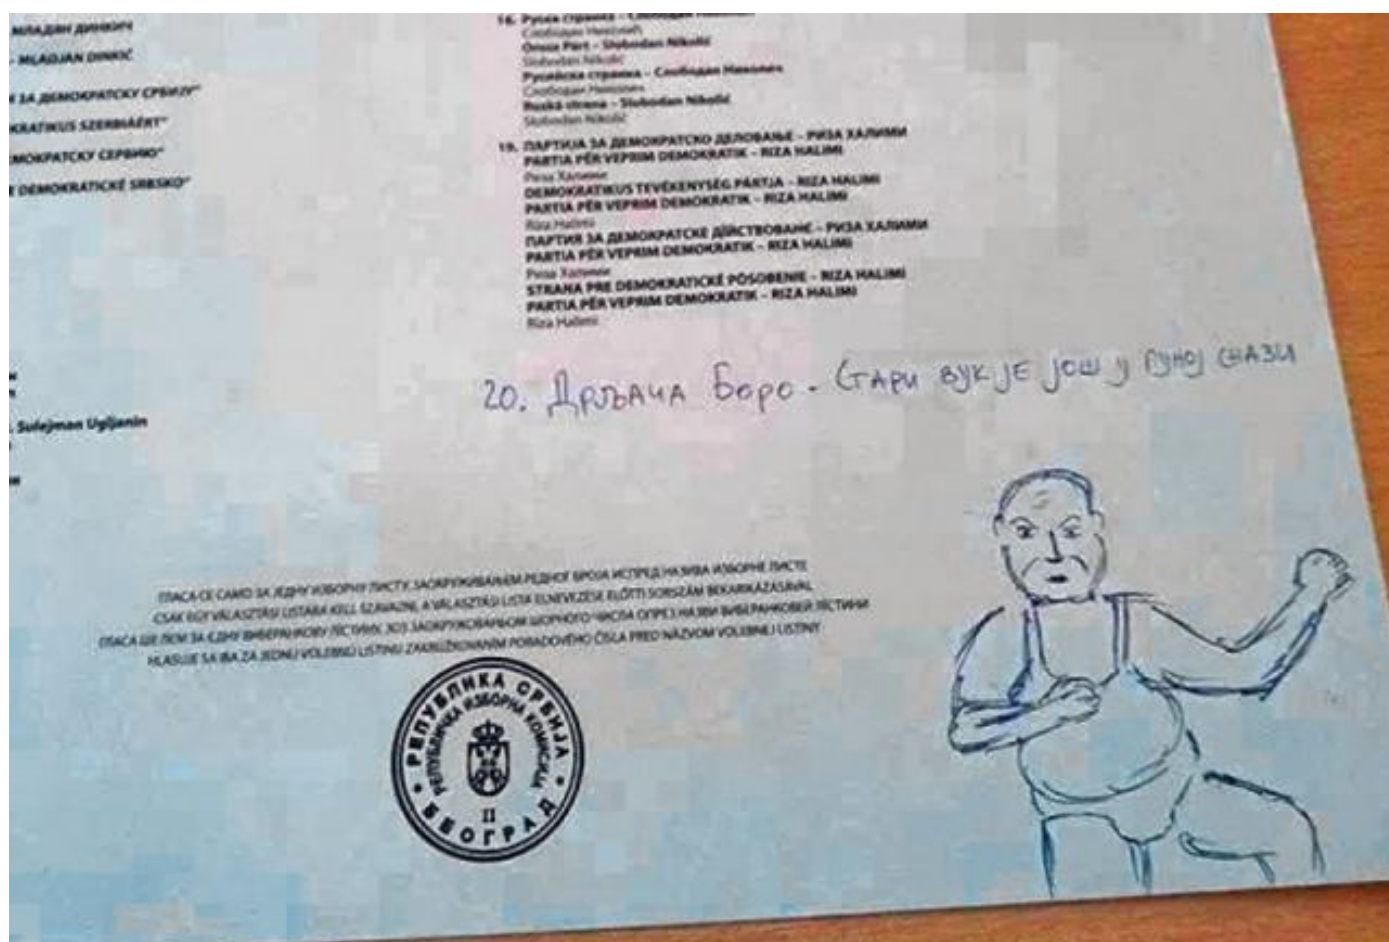 МЛАЂАН ДИНКИЋ
- MLAĐAN DINKIĆ
ЗА ДЕМОКРАТСКУ СРБИЈУ"
KRATIKUS SZERBIÁÉRT"
МОКРАТСКУ СЕРБИЮ"
DEMOKRATICKÉ SRBSKO"
. Sulejman Ugljanin
Слободан Николић
Orosz Párt – Slobodan Nikolić
Slobodan Nikolić
Русийска странка – Слободан Николич
Слободан Николич
Ruská strana – Slobodan Nikolić
Slobodan Nikolić
19. ПАРТИЈА ЗА ДЕМОКРАТСКО ДЕЛОВАЊЕ – РИЗА ХАЛИМИ
PARTIA PËR VEPRIM DEMOKRATIK – RIZA HALIMI
Риза Халими
DEMOKRATIKUS TEVÉKENYSÉG PÁRTJA – RIZA HALIMI
PARTIA PËR VEPRIM DEMOKRATIK – RIZA HALIMI
Riza Halimi
ПАРТИЯ ЗА ДЕМОКРАТСКЕ ДЇЙСТВОВАНЄ – РИЗА ХАЛИМИ
PARTIA PËR VEPRIM DEMOKRATIK – RIZA HALIMI
Риза Халими
STRANA PRE DEMOKRATICKÉ PÔSOBENIE – RIZA HALIMI
PARTIA PËR VEPRIM DEMOKRATIK – RIZA HALIMI
Riza Halimi
20. Дрљача Боро - Стари вук је још у пуној снази
ГЛАСА СЕ САМО ЗА ЈЕДНУ ИЗБОРНУ ЛИСТУ, ЗАОКРУЖИВАЊЕМ РЕДНОГ БРОЈА ИСПРЕД НАЗИВА ИЗБОРНЕ ЛИСТЕ
CSAK EGY VÁLASZTÁSI LISTÁRA KELL SZAVAZNI, A VÁLASZTÁSI LISTA ELNEVEZÉSE ELŐTTI SORSZÁM BEKARIKÁZÁSÁVAL
ГЛАСА ШЕ ЛЄМ ЗА ЄДНУ ВИБЕРАНКОВУ ЛЇСТИНУ, ЗОЗ ЗАОКРУЖОВАНЬОМ ШОРНОГО ЧИСЛА ОПРЕЗ НАЗВИ ВИБЕРАНКОВЕЙ ЛЇСТИНИ
HLASUJE SA IBA ZA JEDNU VOLEBNÚ LISTINU ZAKRÚŽKOVANÍM PORADOVÉHO ČÍSLA PRED NÁZVOM VOLEBNEJ LISTINY
РЕПУБЛИКА СРБИЈА
РЕПУБЛИЧКА ИЗБОРНА КОМИСИЈА
II
БЕОГРАД